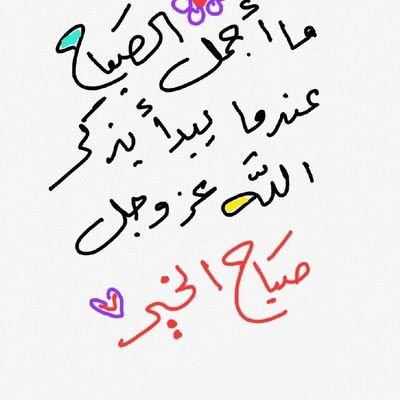 ما أجمل الصباح
عندما يبدأ بذكر
الله عز وجل
صباح الخير